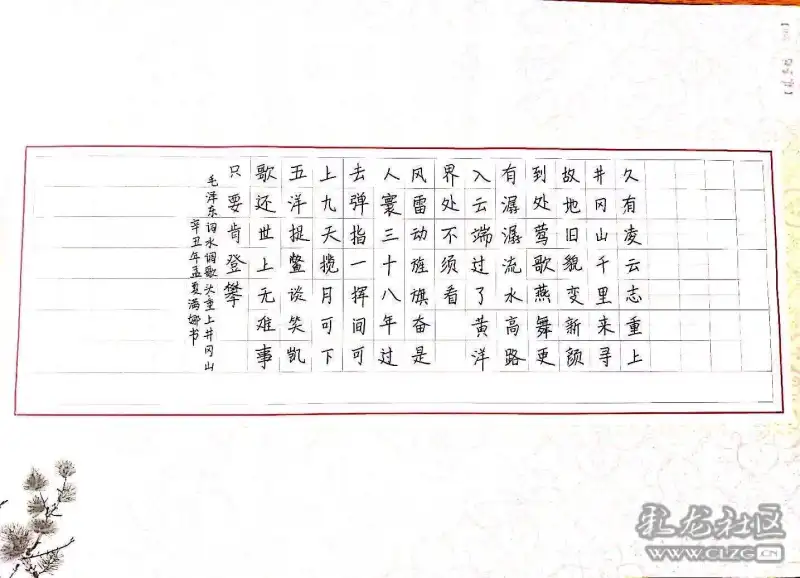 久有凌云志重上
井冈山千里来寻
故地旧貌变新颜
到处莺歌燕舞更
有潺潺流水高路
入云端过了黄洋
界处不须看
风雷动旌旗奋是
人寰三十八年过
去弹指一挥间可
上九天揽月可下
五洋捉鳖谈笑凯
歌还世上无难事
只要肯登攀
毛泽东词水调歌头重上井冈山
辛丑年孟夏满娜书
彩龙社区
WWW.CLZG.CN